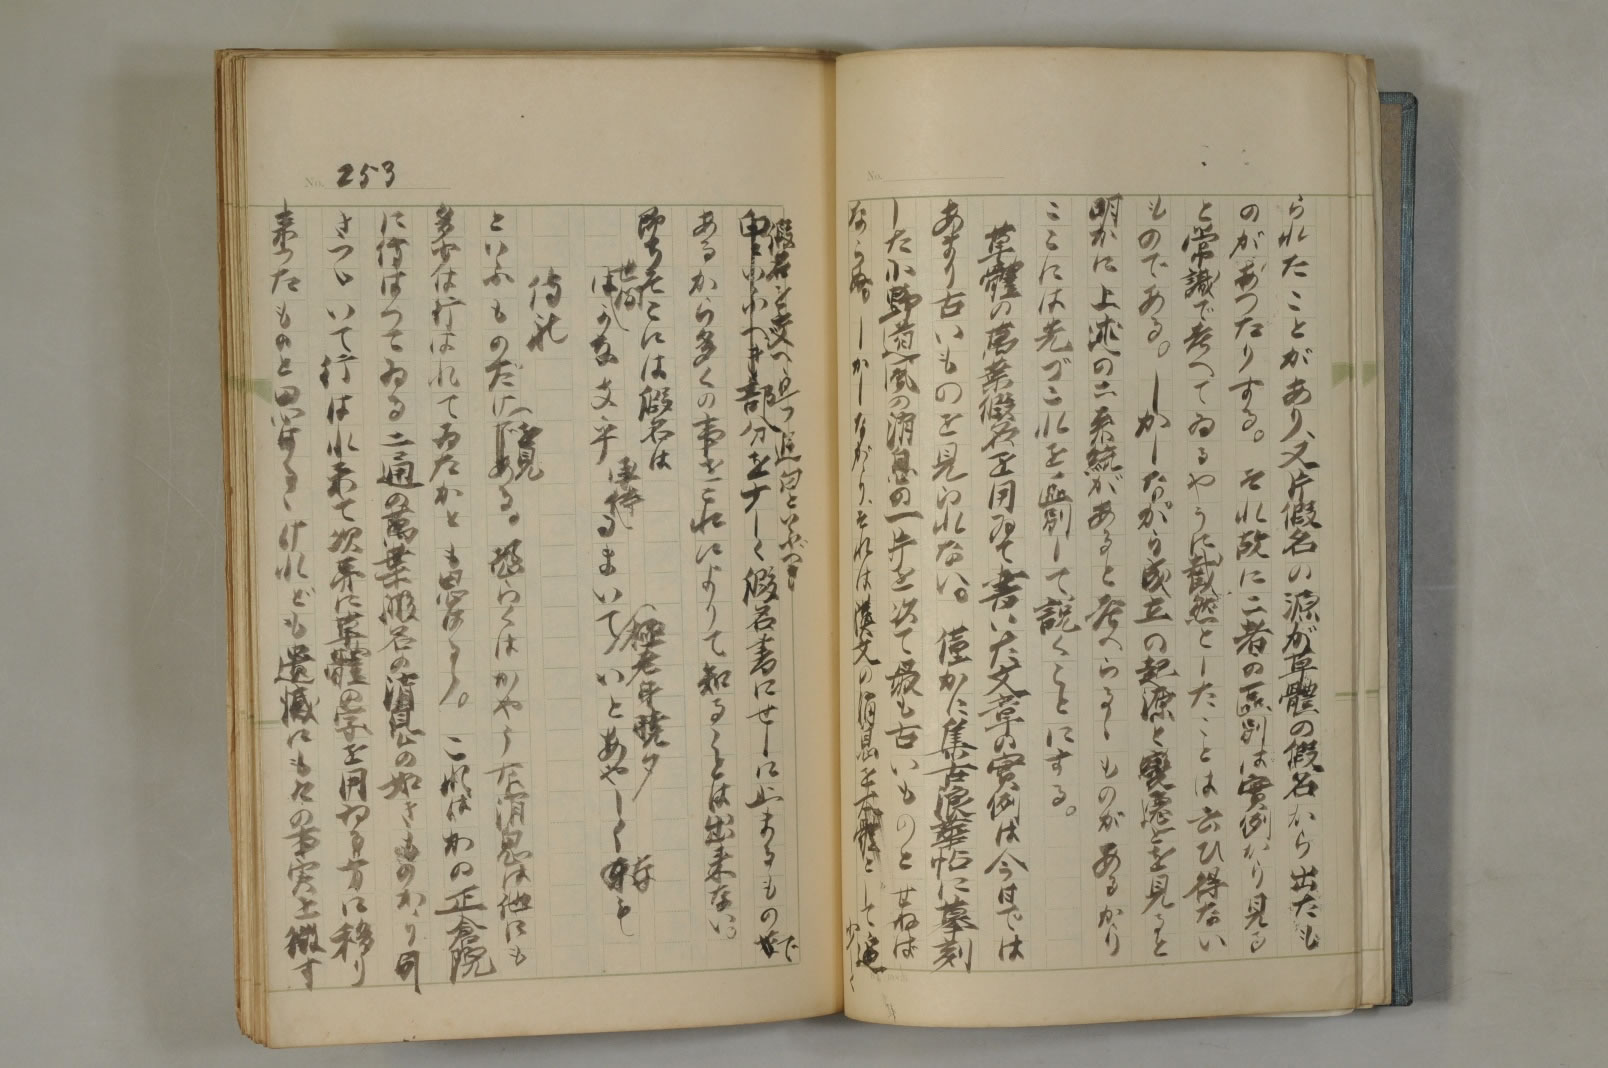 られたことがあり、又片假名の源が草體の假名から出たも
のがあつたりする。それ故に二者の區別は實例より見る
と常識で考へてゐるやうに截然としたことは云ひ得ない
ものである。しかしながら成立の起源と變遷とを見ると
明かに上述の二系統があると考へらるゝものがあるから
ここには先づこれを區別して説くことにする。
草體の萬葉假名を用ゐて書いた文章の實例は今日では
あまり古いものを見られない。僅かに集古浪華帖に摹刻
した小野道風の消息の一片を以て最も古いものとせねば
ならぬ。しかしながら、それは漢文の消息を本體として
少く
No.
No. 253
假名を交へ
部分を少しく假名書にせしに止まるもので
あるから多くの事をこれによりて知ることは出來ない。
即ちそこには假名は
世間
はかな
極老身
るまいて いとあやしく
侍札
といふものだけである。恐らくはかやうな消息は他にも
多少は行はれてゐたかとも思はるゝ。これはかの正倉院
に傳はつてゐる二通の萬葉假名の消息の如きものから引
きつゞいて行はれ來て次第に草體の字を用ゐる方に移り
來つたものと思はるゝけれども遺憾にも之の事実を徴す